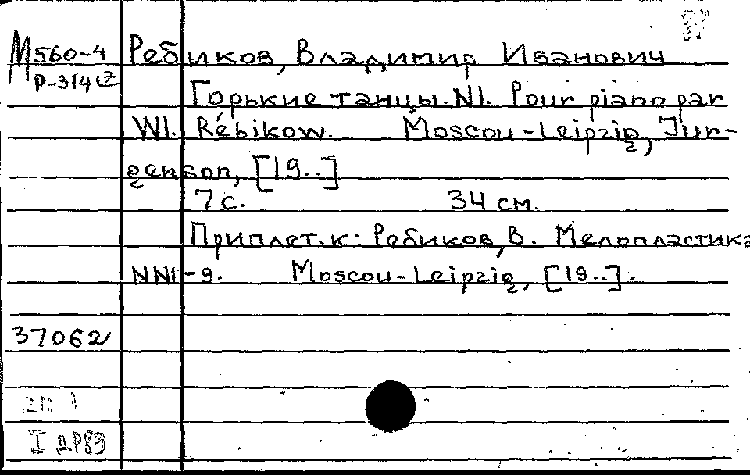 М560-4 Ребиков, Владимир Иванович
Р-314
Горькие танцы. N1. Pour piano par
Wl. Rébikow. Moscou-Leipzig, Jur-
genson, [19..]
7 с. 34 см.
Приплет. к: Ребиков, В. Мелопластика
NN1-9. Moscou-Leipzig, [19..].
37062